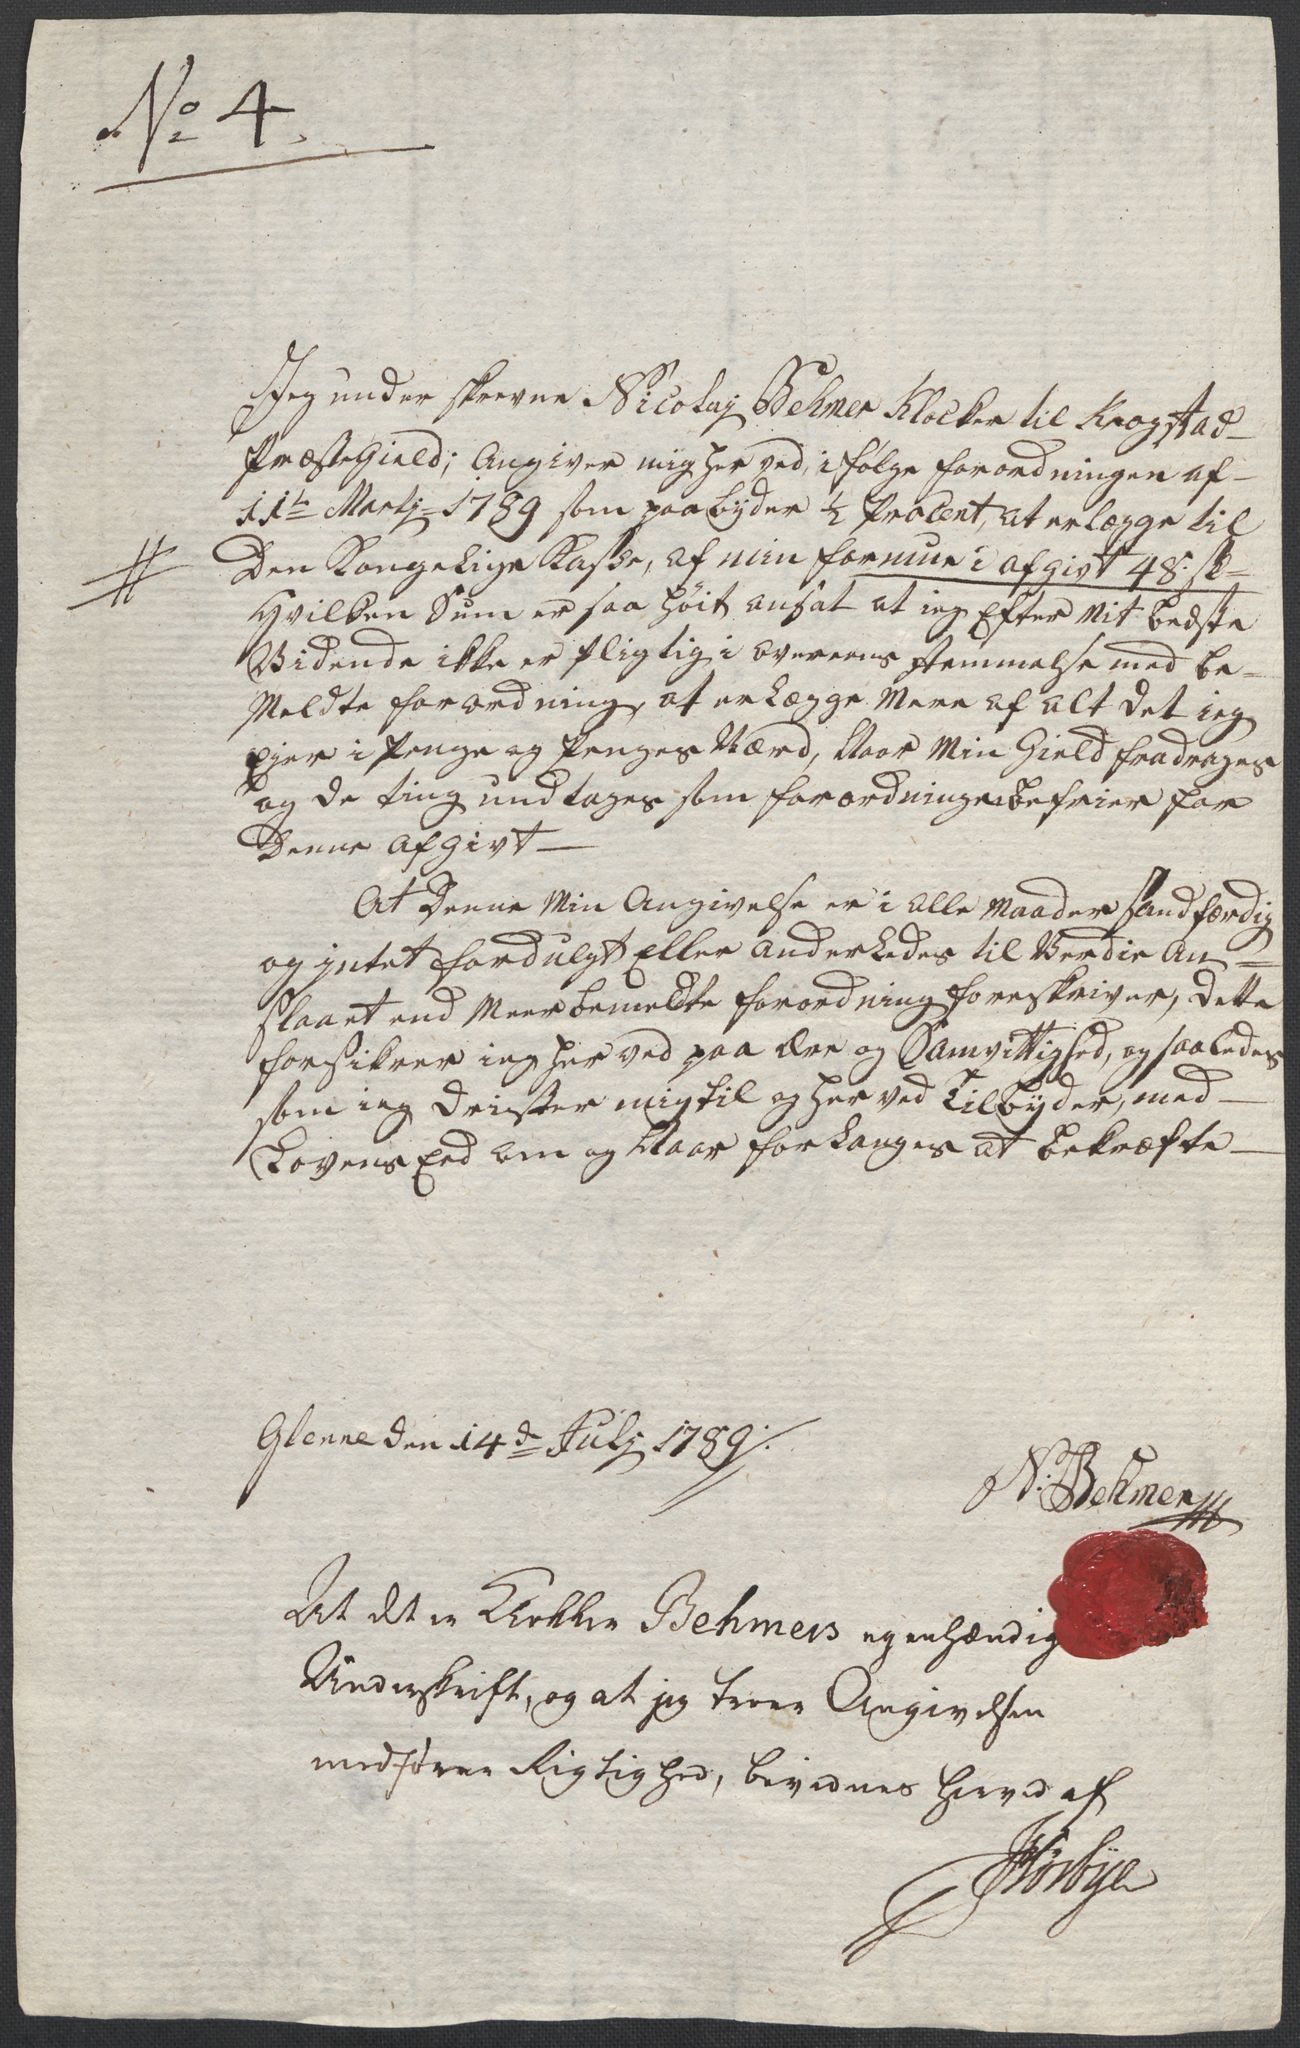 No 4.
Jeg under skrevne Nicolay Behmer Klocker til Krogstad
PræsteGield; Angiver mig her ved, i følge forordningen af
11te Martj 1789 som paabyder ½ Procent, at erlægge til
Den Kongelige Kasse, af min formue i afgivt 48: s
Hvilken Sum er saa høit ansat at ieg Efter Mit bedste
Vidende ikke er pligtig i overeens stemmelse med be-
Meldte forordning, at erLægge Mere af alt det ieg
Ejer i Penge og Penges Værd, Naar Min Gield fradrages
og de ting undtages som forordningen befrier for
Denne afgivt
At Denne Min Angivelse er i alle Maader sandfærdig
og intet fordulgt Eller anderLedes til Verdie An=
slaaet end Meerbemeldte forordning foreskriver, dette
forsikrer ieg her ved paa ære og Samvittighed, og saaLedes
som ieg Drister mig til og her ved Tilbyder, med
Lovens Eed om og Naar forLanges at bekræfte
Glenne den 14de Julj 1789
N: Behmer
At det er Klokker Behmers egenhændig
Underskrift, og at jeg troer Angivelsen
medfører Rigtighed, bevidnes herved af